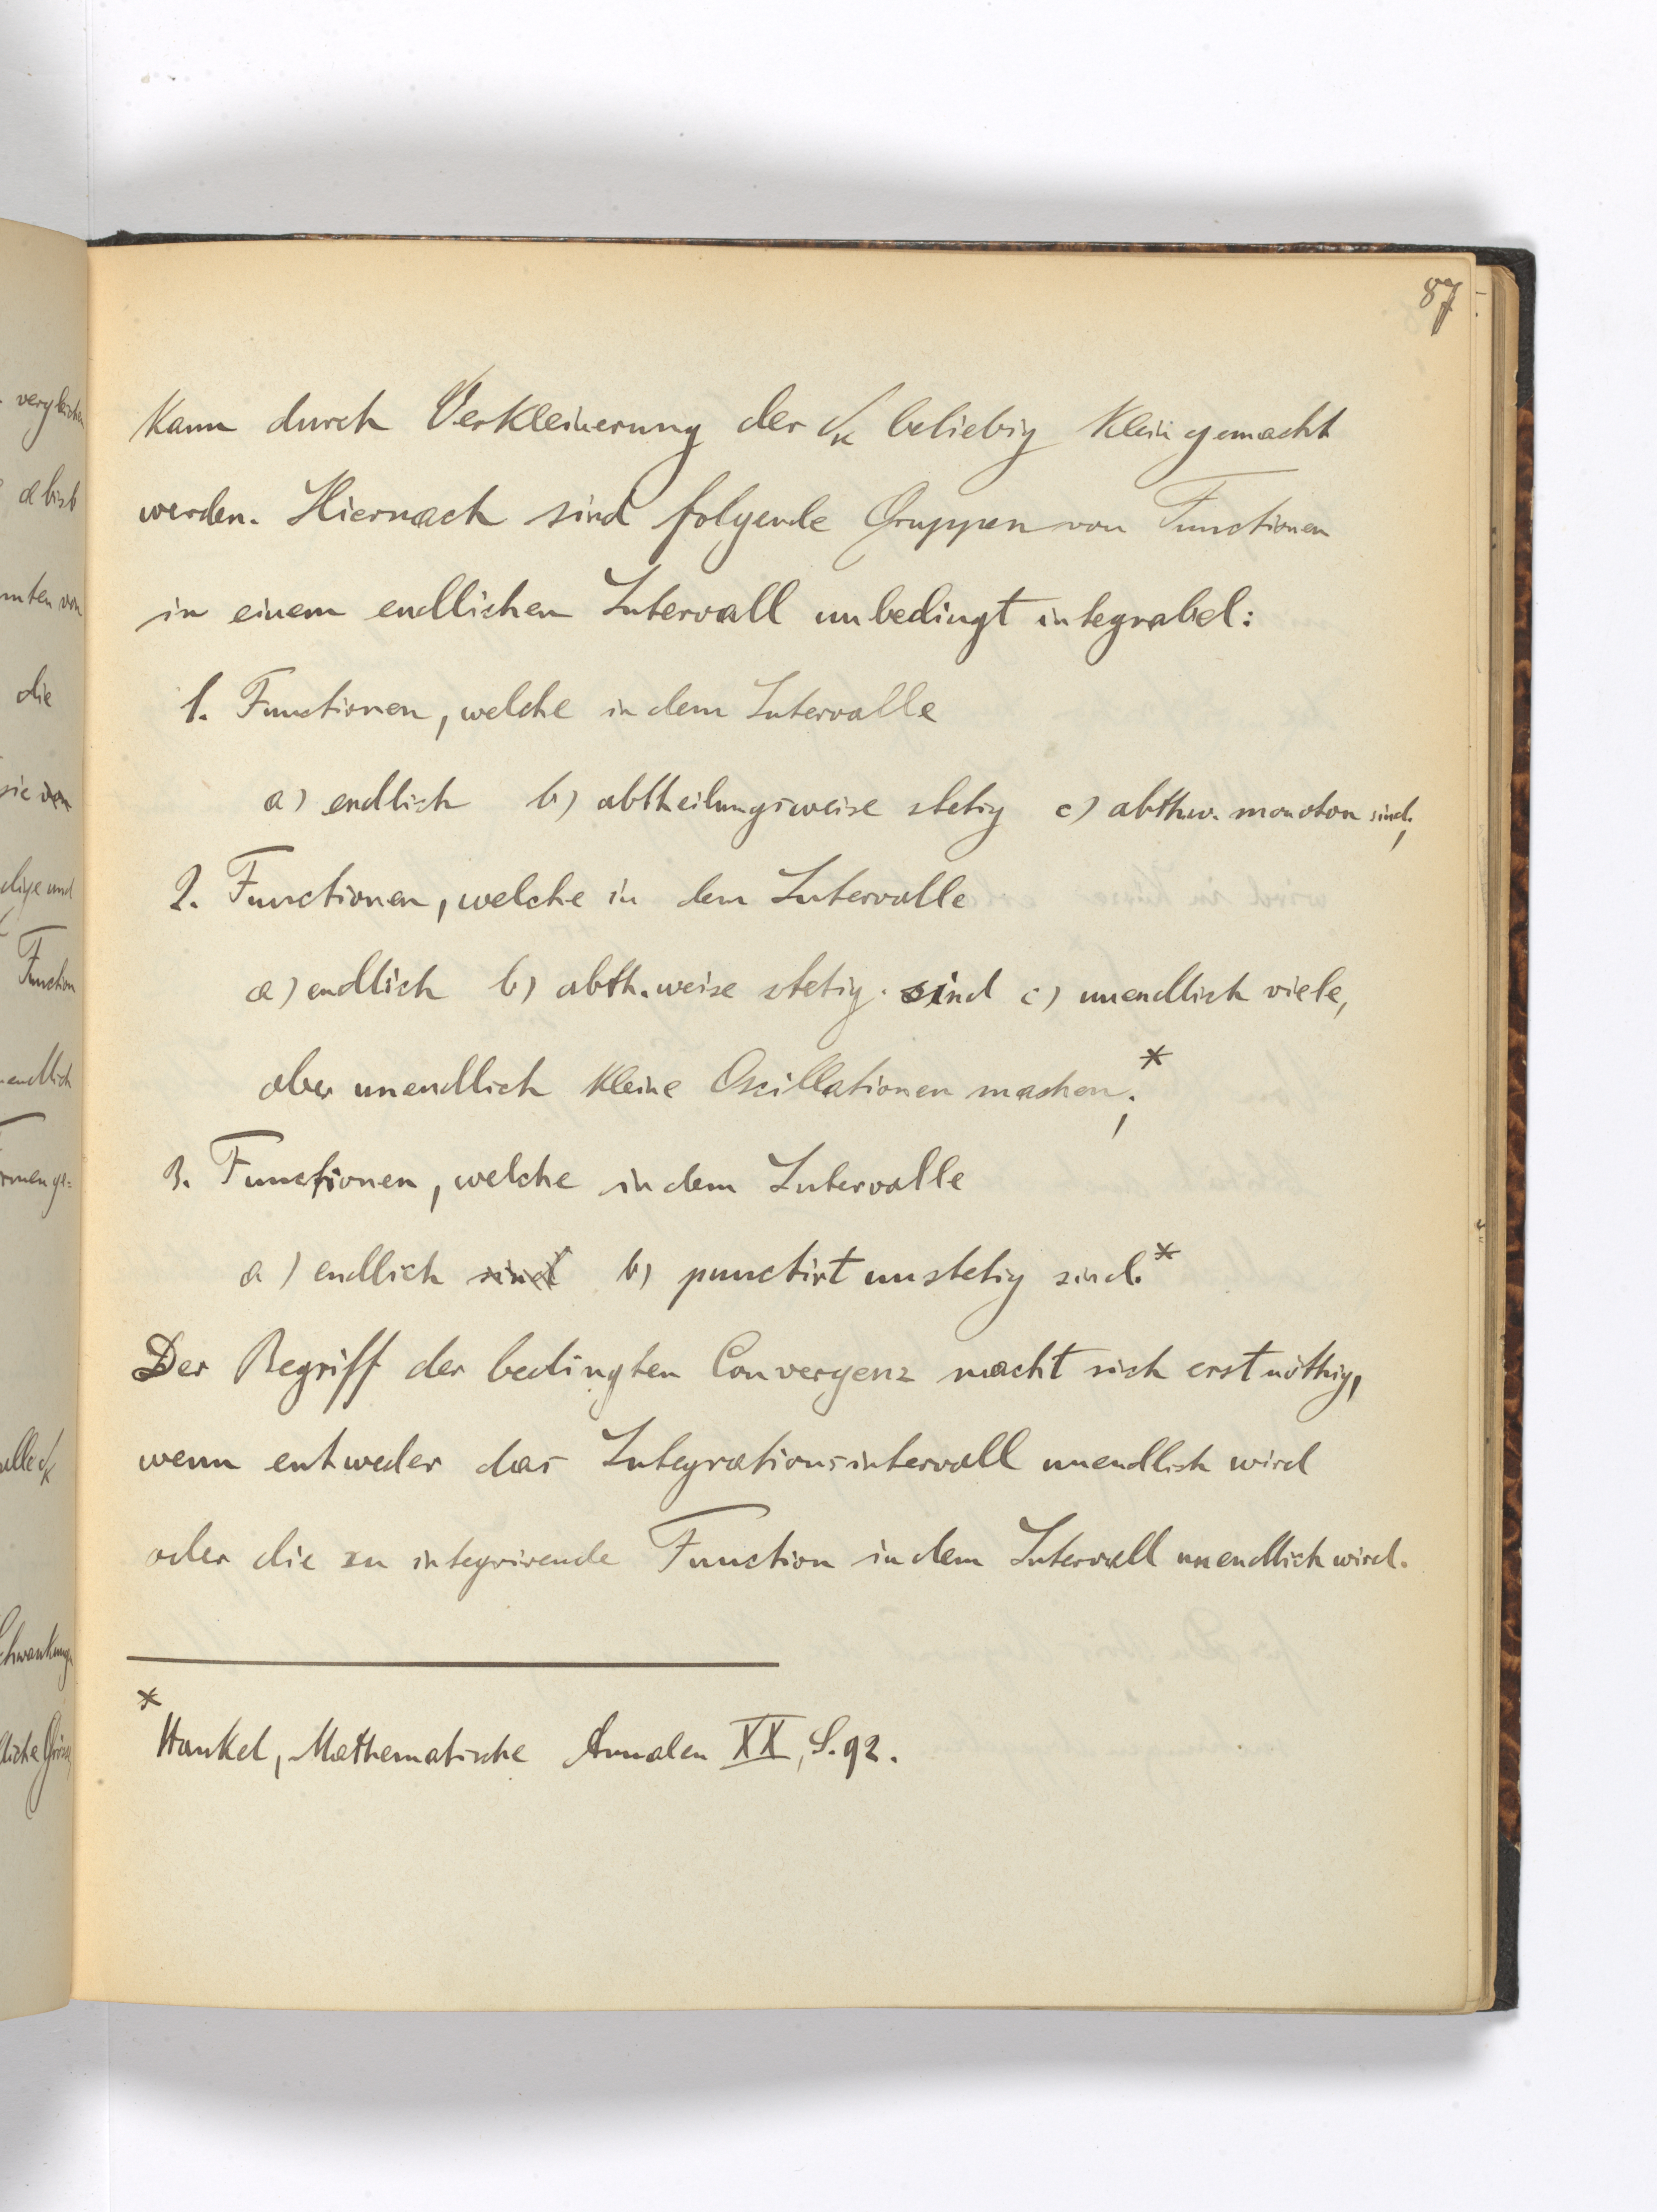 87
kann durch Verkleinerung der δₖ beliebig klein gemacht
werden. Hiernach sind folgende Gruppen von Functionen
in einem endlichen Intervall unbedingt integrabel:
1. Functionen, welche in dem Intervalle
a) endlich b) abtheilungsweise stetig c) abthw. monoton sind;
2. Functionen, welche in dem Intervalle
a) endlich b) abth. weise stetig sind c) unendlich viele,
aber unendlich kleine Oscillationen machen;*
3. Functionen, welche in dem Intervalle
a) endlich sind b) punctirt unstetig sind.*
Der Begriff der bedingten Convergenz macht sich erst nöthig,
wenn entweder das Integrationsintervall unendlich wird
oder die zu integrirende Function in dem Intervall unendlich wird.
* Hankel, Mathematische Annalen XX, S. 92.
vergleichen
die
sie von
Function
endlich
alle δₖ
Schwankung